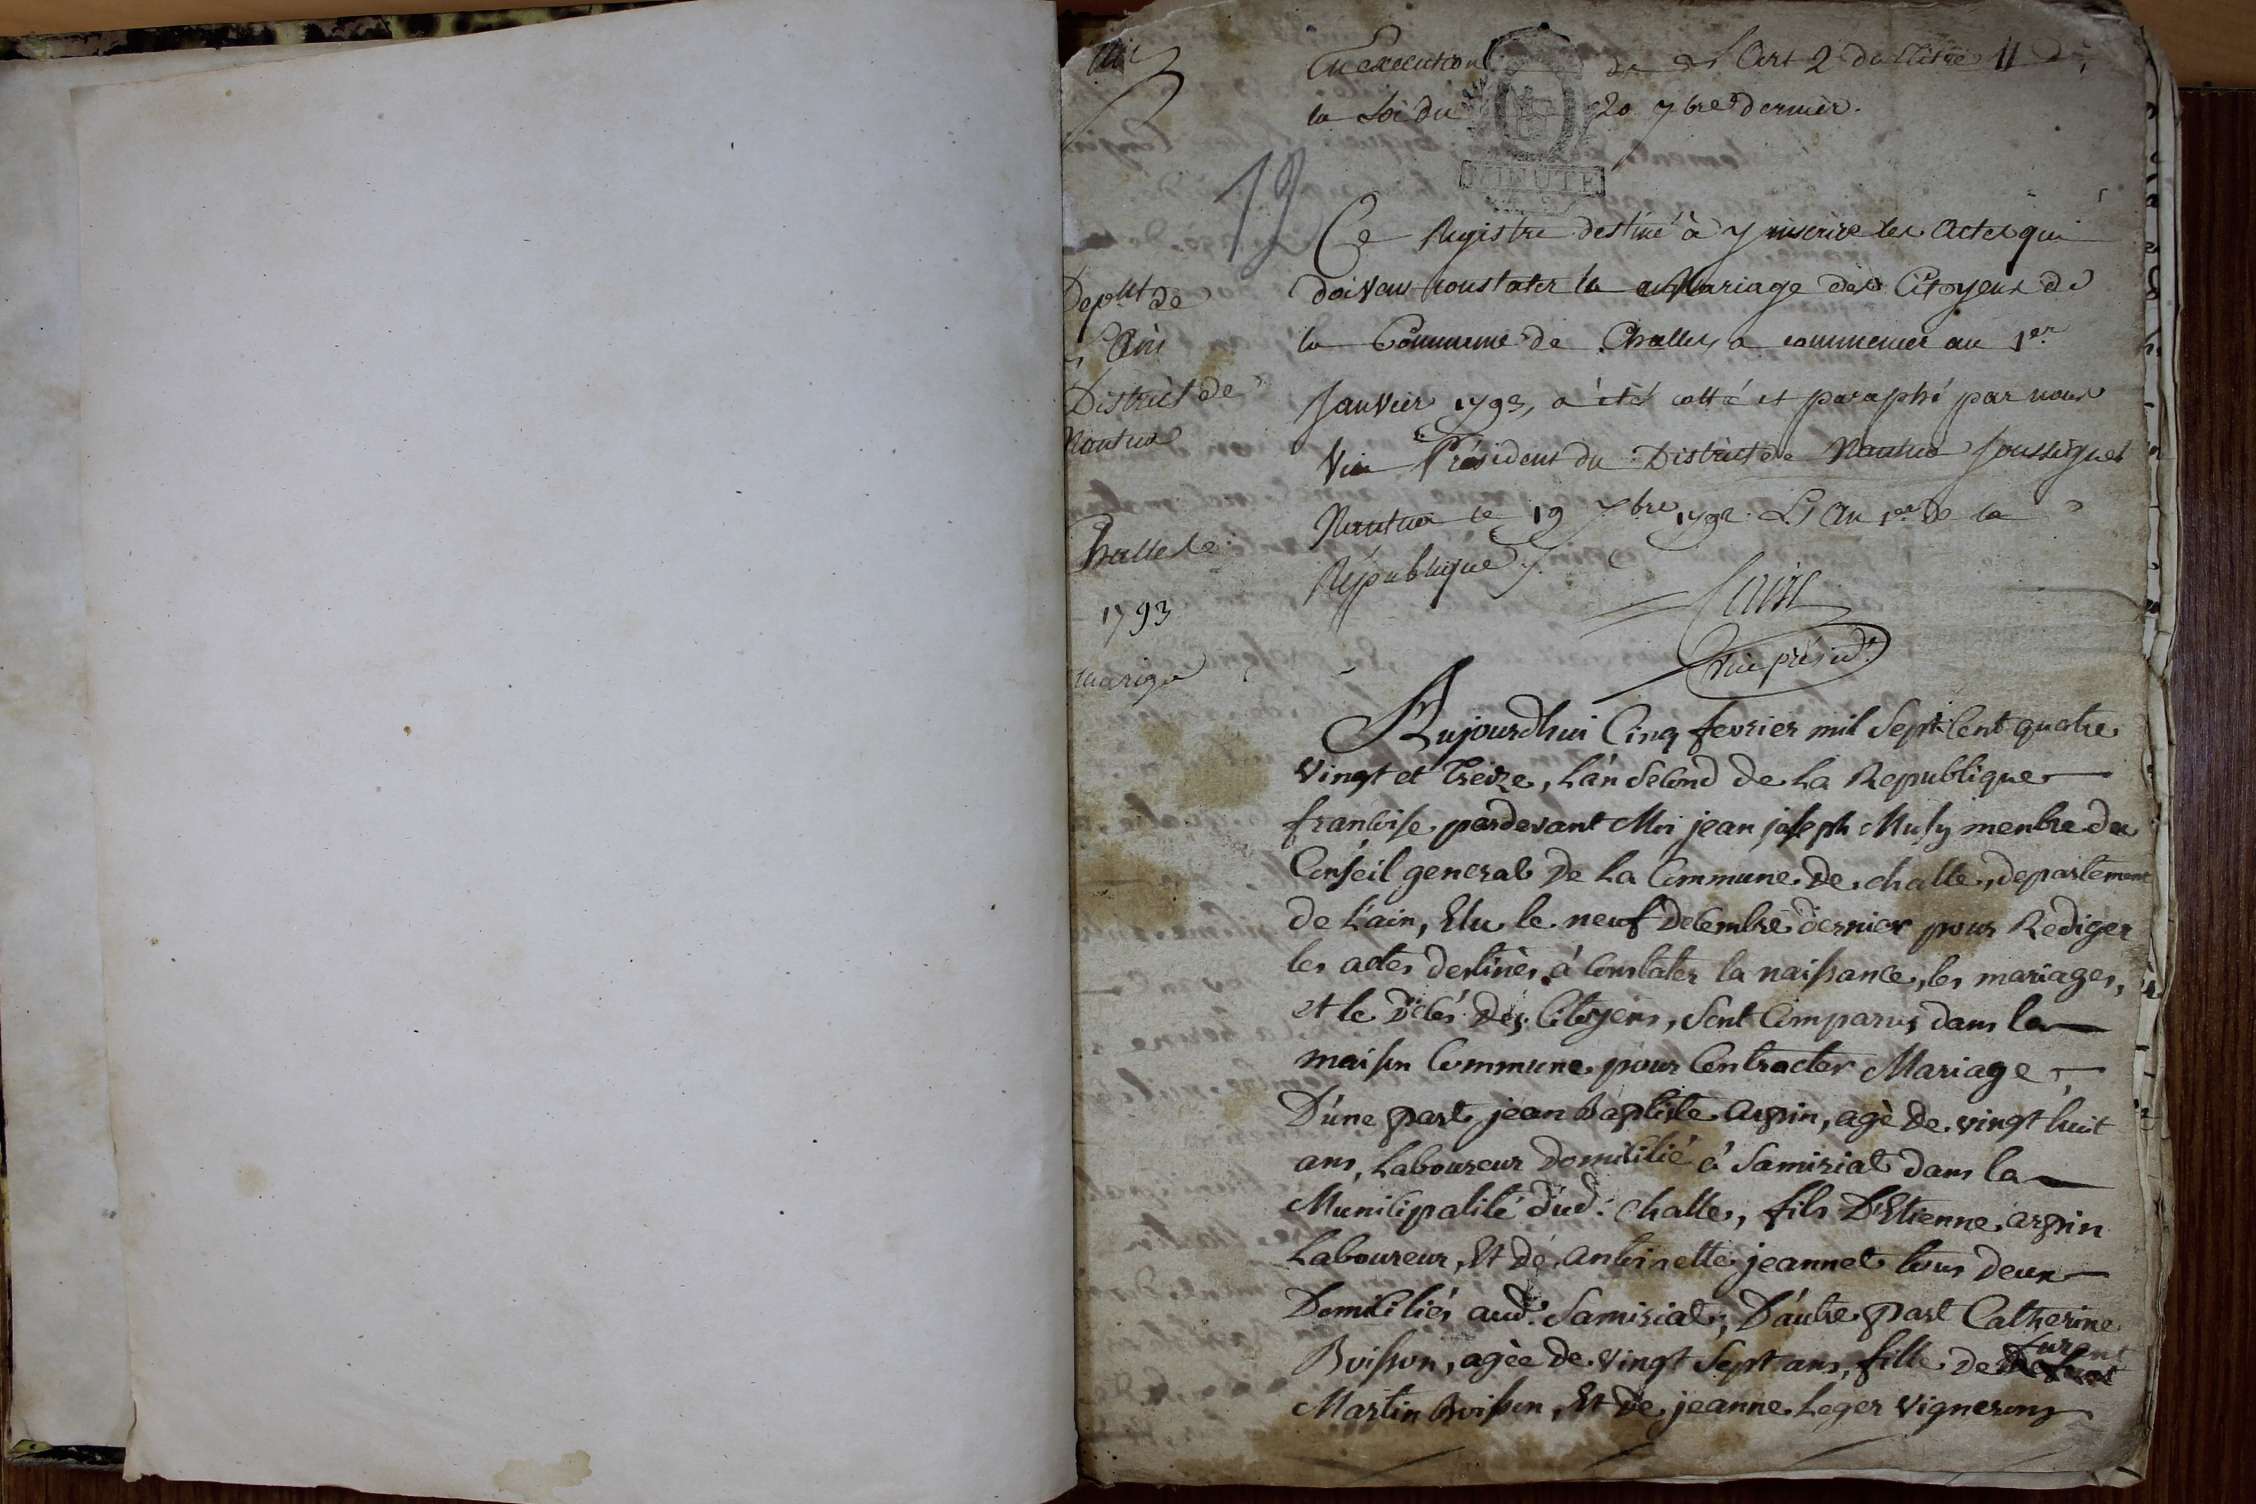 19
MINUTE
En execution de L'Art 2 du titre II de
la Loi du 20 7bre dernier.
Ce Registre destiné à y inscrire les Actes qui
doivent constater le Mariage des Citoyens de
la Commune de Challes a commencer au 1er
Janvier 1793, a été cotté et paraphé par nous
Vice Président du District de Nantua soussigné
Nantua le 19 Xbre 1792 L'An 1er de la
République
vice présidt
Deptt de
L'Ain
District de
Nantua
Challes
1793
mariage
Aujourdhui Cinq fevrier mil Sept Cent quatre
Vingt et treize, L'an Second de La Republique
françoise pardevant Moi jean joseph Musy menbre du
Conseil general de La Commune de challe, departement
de L'ain, Elu le neuf decembre dernier pour Rediger
les actes destinés à Constater la naissance, les mariages,
et le décés des Citoyens, Sont Comparus dans la
maison Commune pour Contracter Mariage
D'une part jean Baptiste arpin, agè de vingt huit
ans, Laboureur Domicilié à Samiriat dans la
Municipalité dud. challe, fils D'Etienne arpin
Laboureur, Et de antoinette jeannet tous deux
Domiciliés aud. Samiriat, D'autre part Catherine
Boisson, agèe de vingt Sept ans, fille de
Martin Boisson, Et de jeanne Leger Vignerons